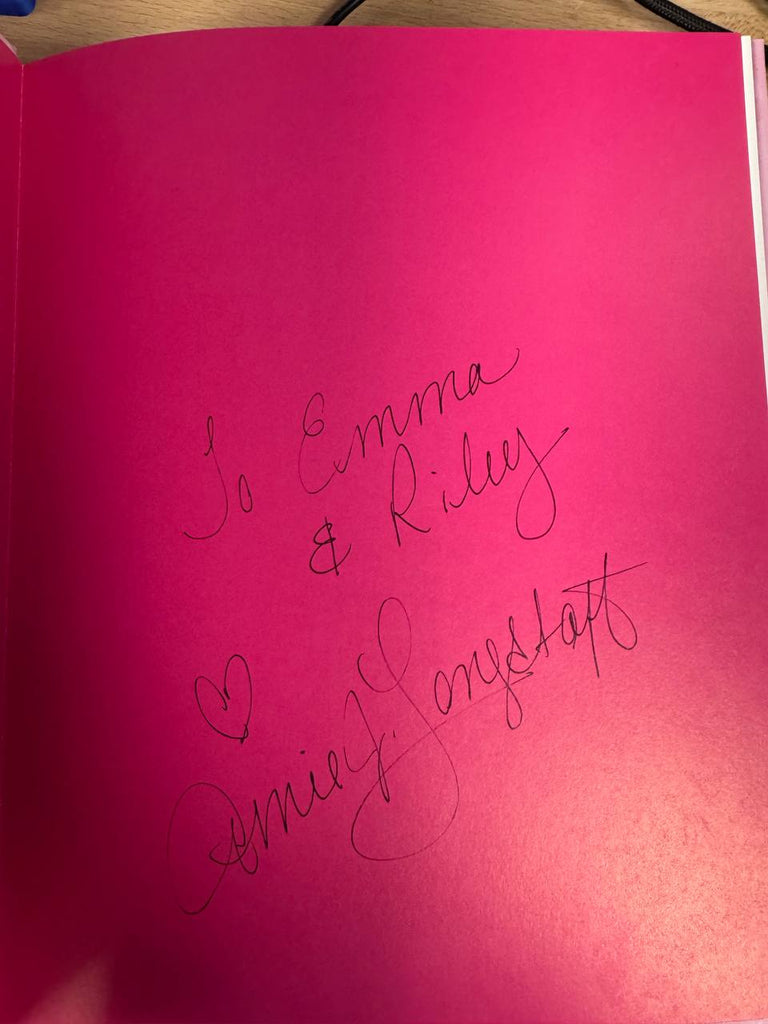 To Emma
& Riley
♡
Amie J. Longstaff